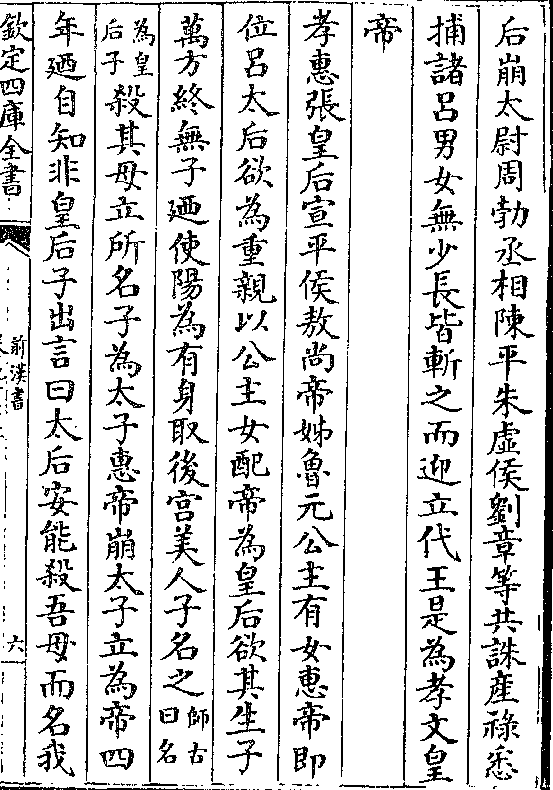 后崩太尉周勃丞相陳平朱虚侯劉章等共誅産祿悉
捕諸呂男女無少長皆斬之而迎立代王是為孝文皇
帝
孝惠張皇后宣平侯敖尚帝姊魯元公主有女惠帝即
位呂太后欲為重親以公主女配帝為皇后欲其生子
萬方終無子廼使陽為有身取後宮美人子名之師古曰名
為皇后子殺其母立所名子為太子惠帝崩太子立為帝四
年廼自知非皇后子出言曰太后安能殺吾母而名我
欽定四庫全書
前漢書
六